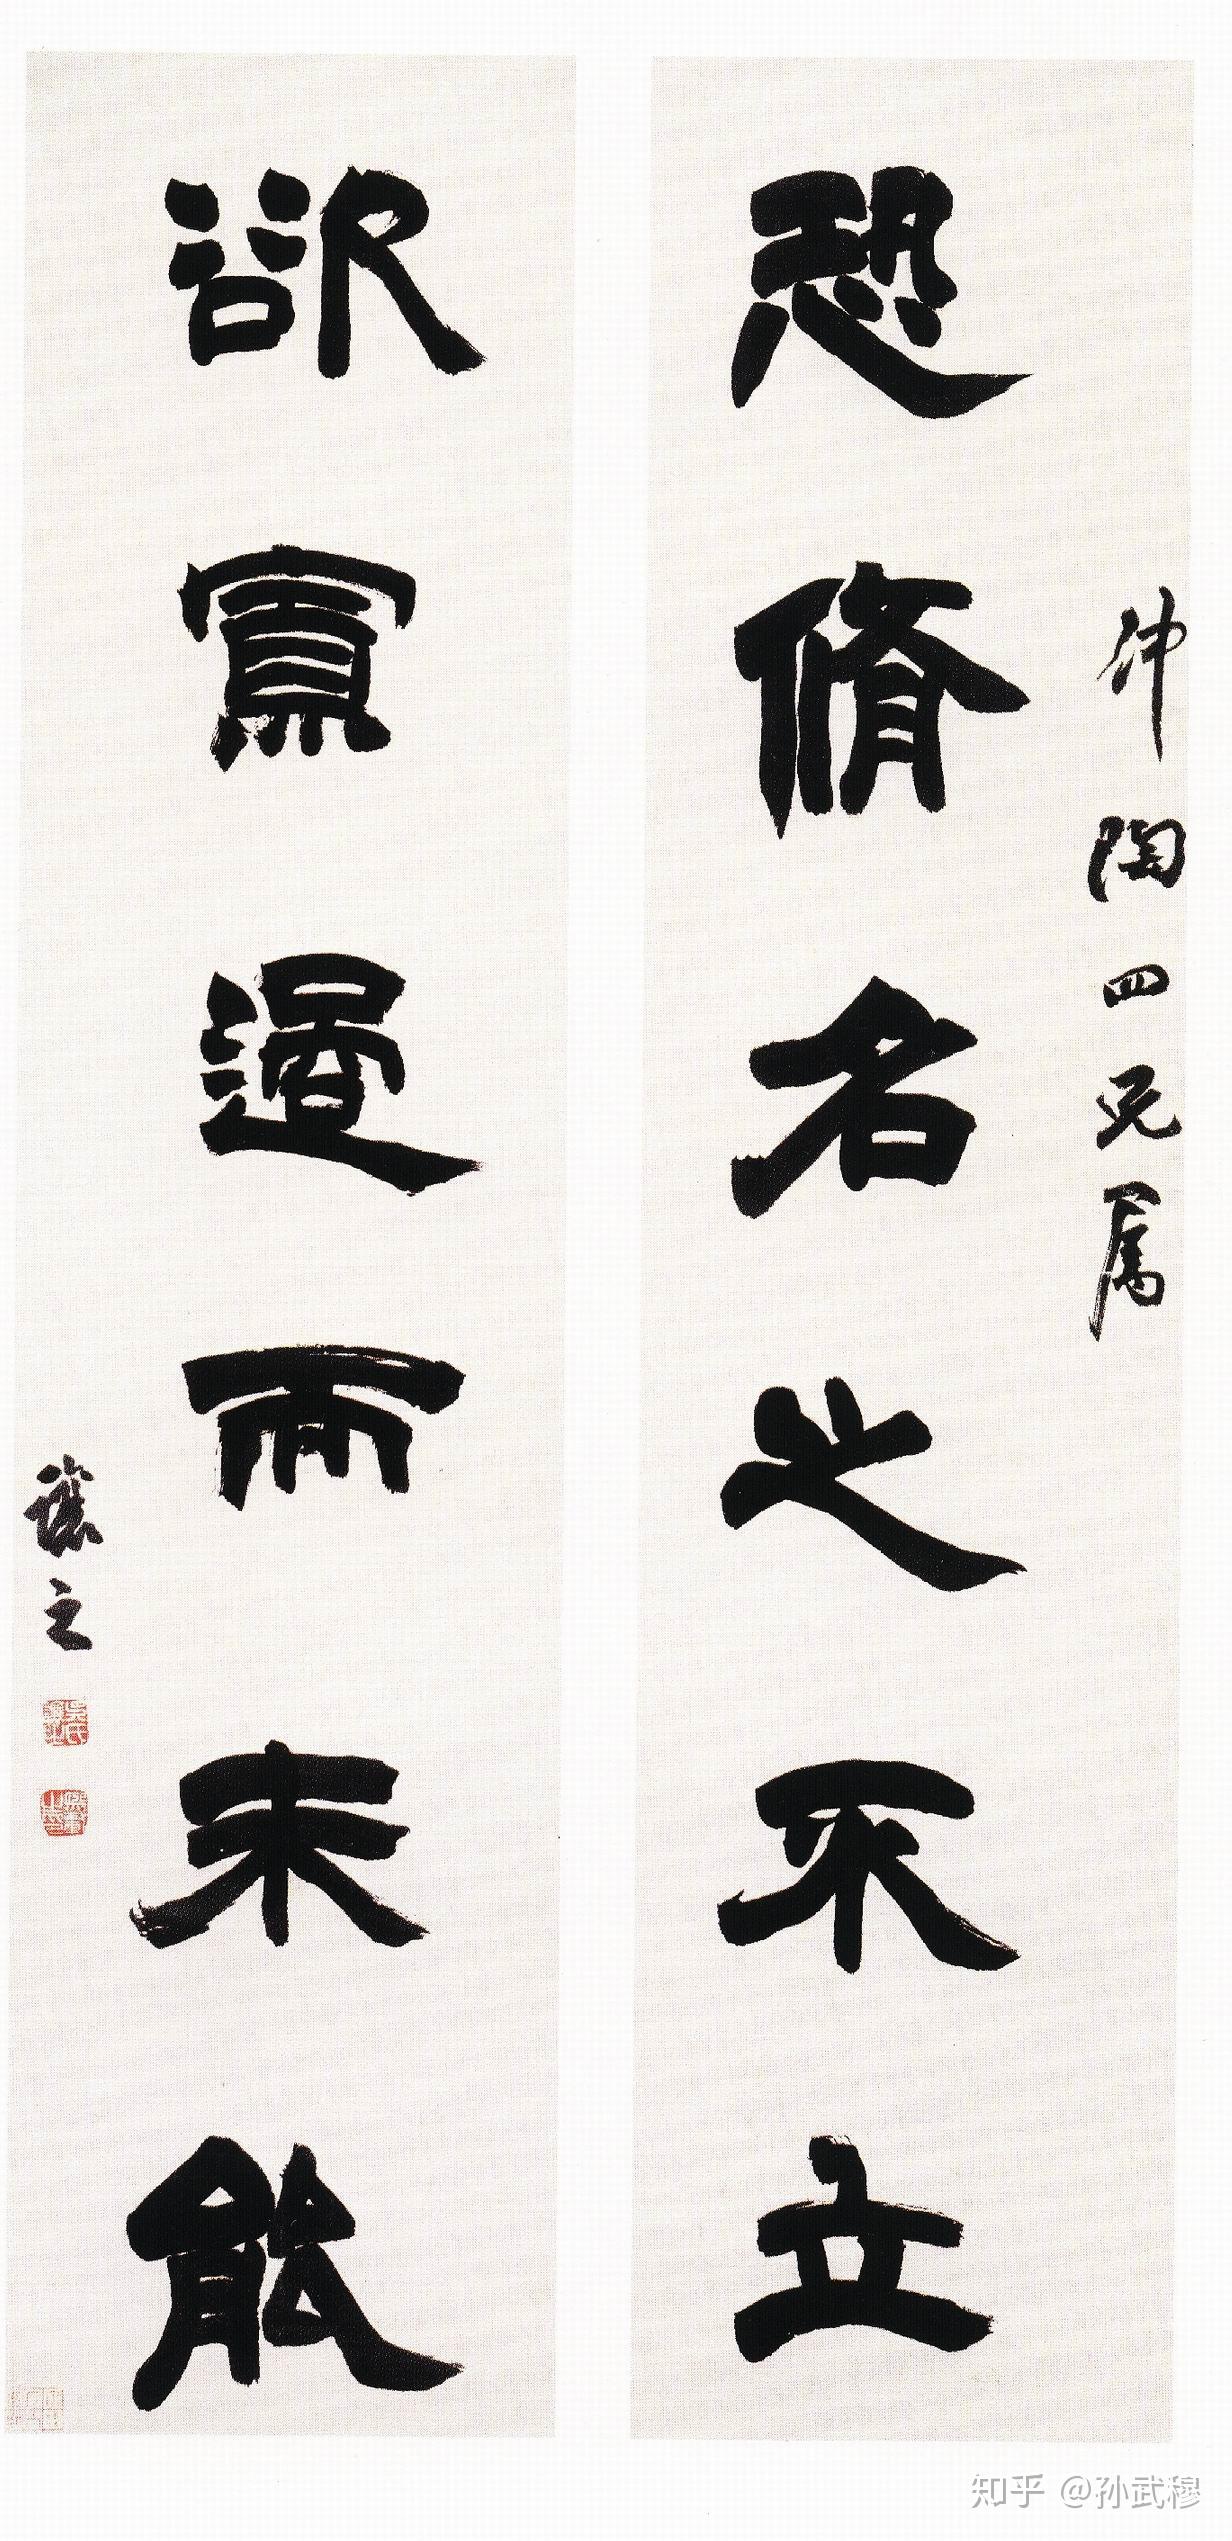 沖陶四兄屬
恐脩名之不立
欲寡過而未能
讓之
知乎 @孙武穆